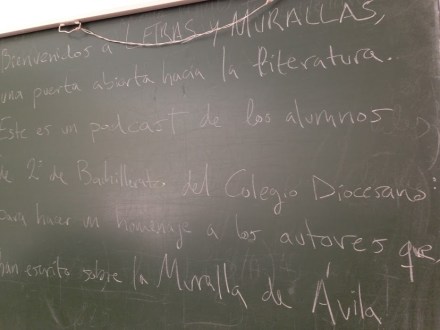 Bienvenidos a LETRAS Y MURALLAS,
una puerta abierta hacia la literatura.
Este es un podcast de los alumnos
de 2º de Bachillerato del Colegio Diocesano:
para hacer un homenaje a los autores que
han escrito sobre la Muralla de Ávila